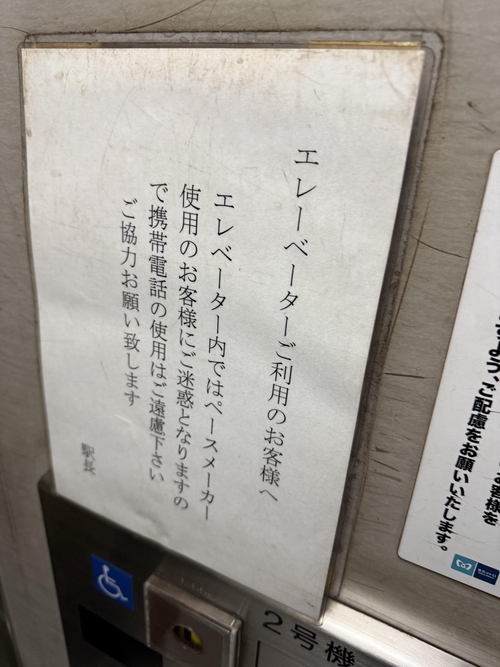 エレーベーターご利用のお客様へ
エレベーター内ではペースメーカー
使用のお客様にご迷惑となりますの
で携帯電話の使用はご遠慮下さい
ご協力お願い致します
駅長
お客様を
ご配慮をお願いいたします。
2号機